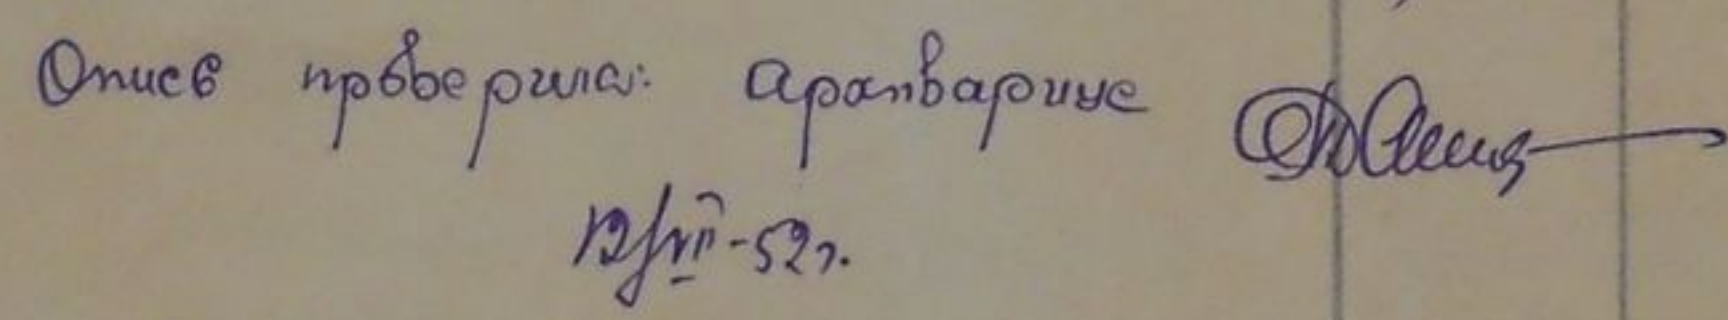 Опись проверила: архивариус
12/VII-52г.